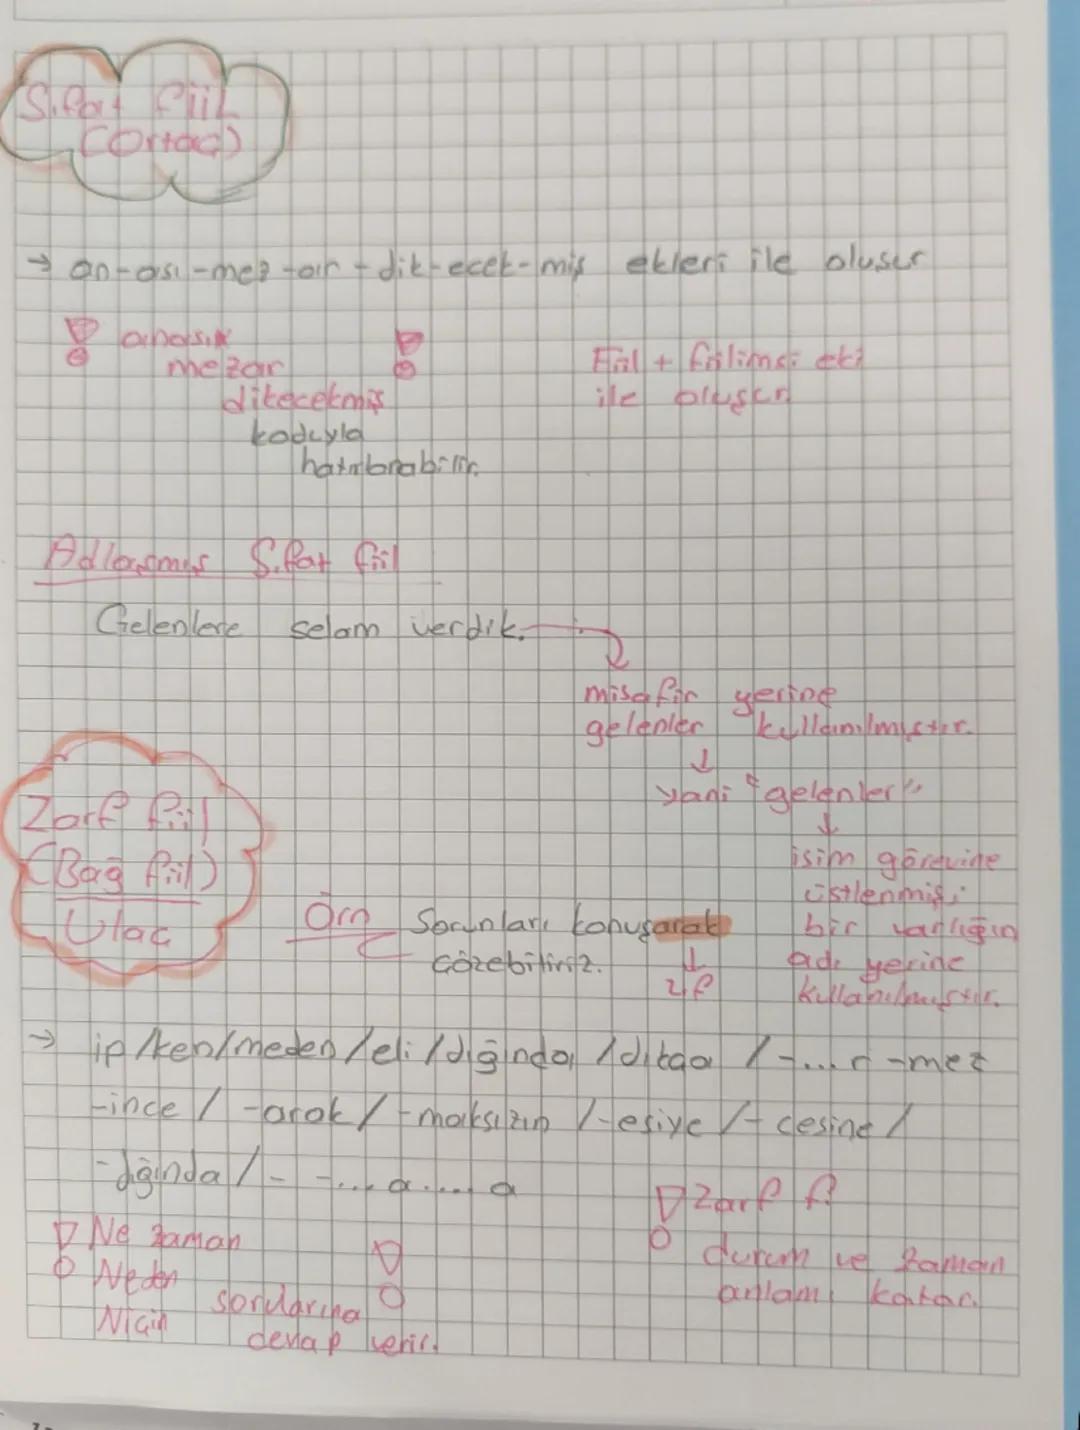 Sıfat fiil
(Ortaç)
→ an-ası-mez-ar-dik-ecek-miş ekleri ile oluşur
! anası
mezar
dikecekmiş !
koduyla
hatırlanabilir.
Fiil + fiilimsi eki
ile oluşur
Adlaşmış Sıfat fiil
Gelenlere selam verdik.
misafir yerine
gelenler kullanılmıştır.
↓
yani "gelenler"
↓
isim görevine
üstlenmiş
bir varlığın
adı yerine
kullanılmıştır.
Zarf fiil
(Bağ fiil)
Ulaç
Örn Sorunları konuşarak
çözebiliriz.
↓
zf
→ ip/ken/meden/eli/dığında/dıkça/-...r -mez
-ince/-arak/-maksızın/-esiye/-cesine/
-dığında/- -...a....a
! Ne zaman
Neden
Niçin
sorularına !
cevap verir.
! Zarf f
durum ve zaman
anlamı katar.